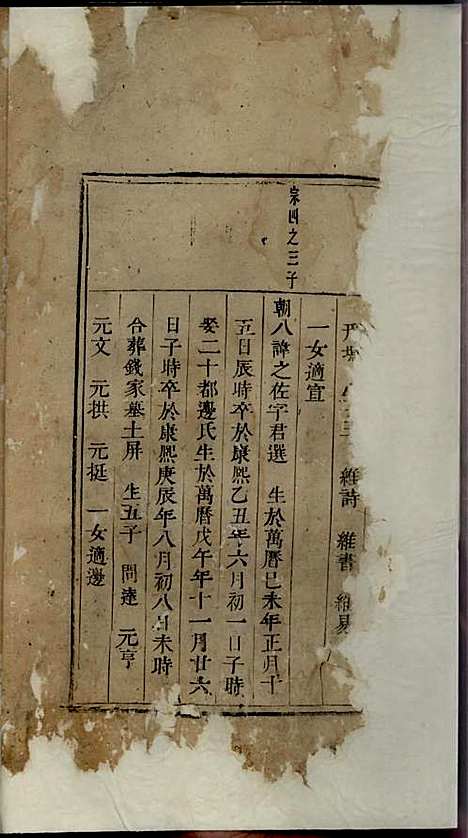 生三 維詩 維書 維易
一女適宣
宗四之三子
朝八諱之佐字君選 生於萬曆已未年正月十
五日辰時卒於康熙乙丑年六月初一日子時
娶二十都邊氏生於萬曆戊午年十一月廿六
日子時卒於康熙庚辰年八月初八日未時
合葬錢家墓土屏 生五子 問達 元亨
元文 元拱 元挺 一女適邊